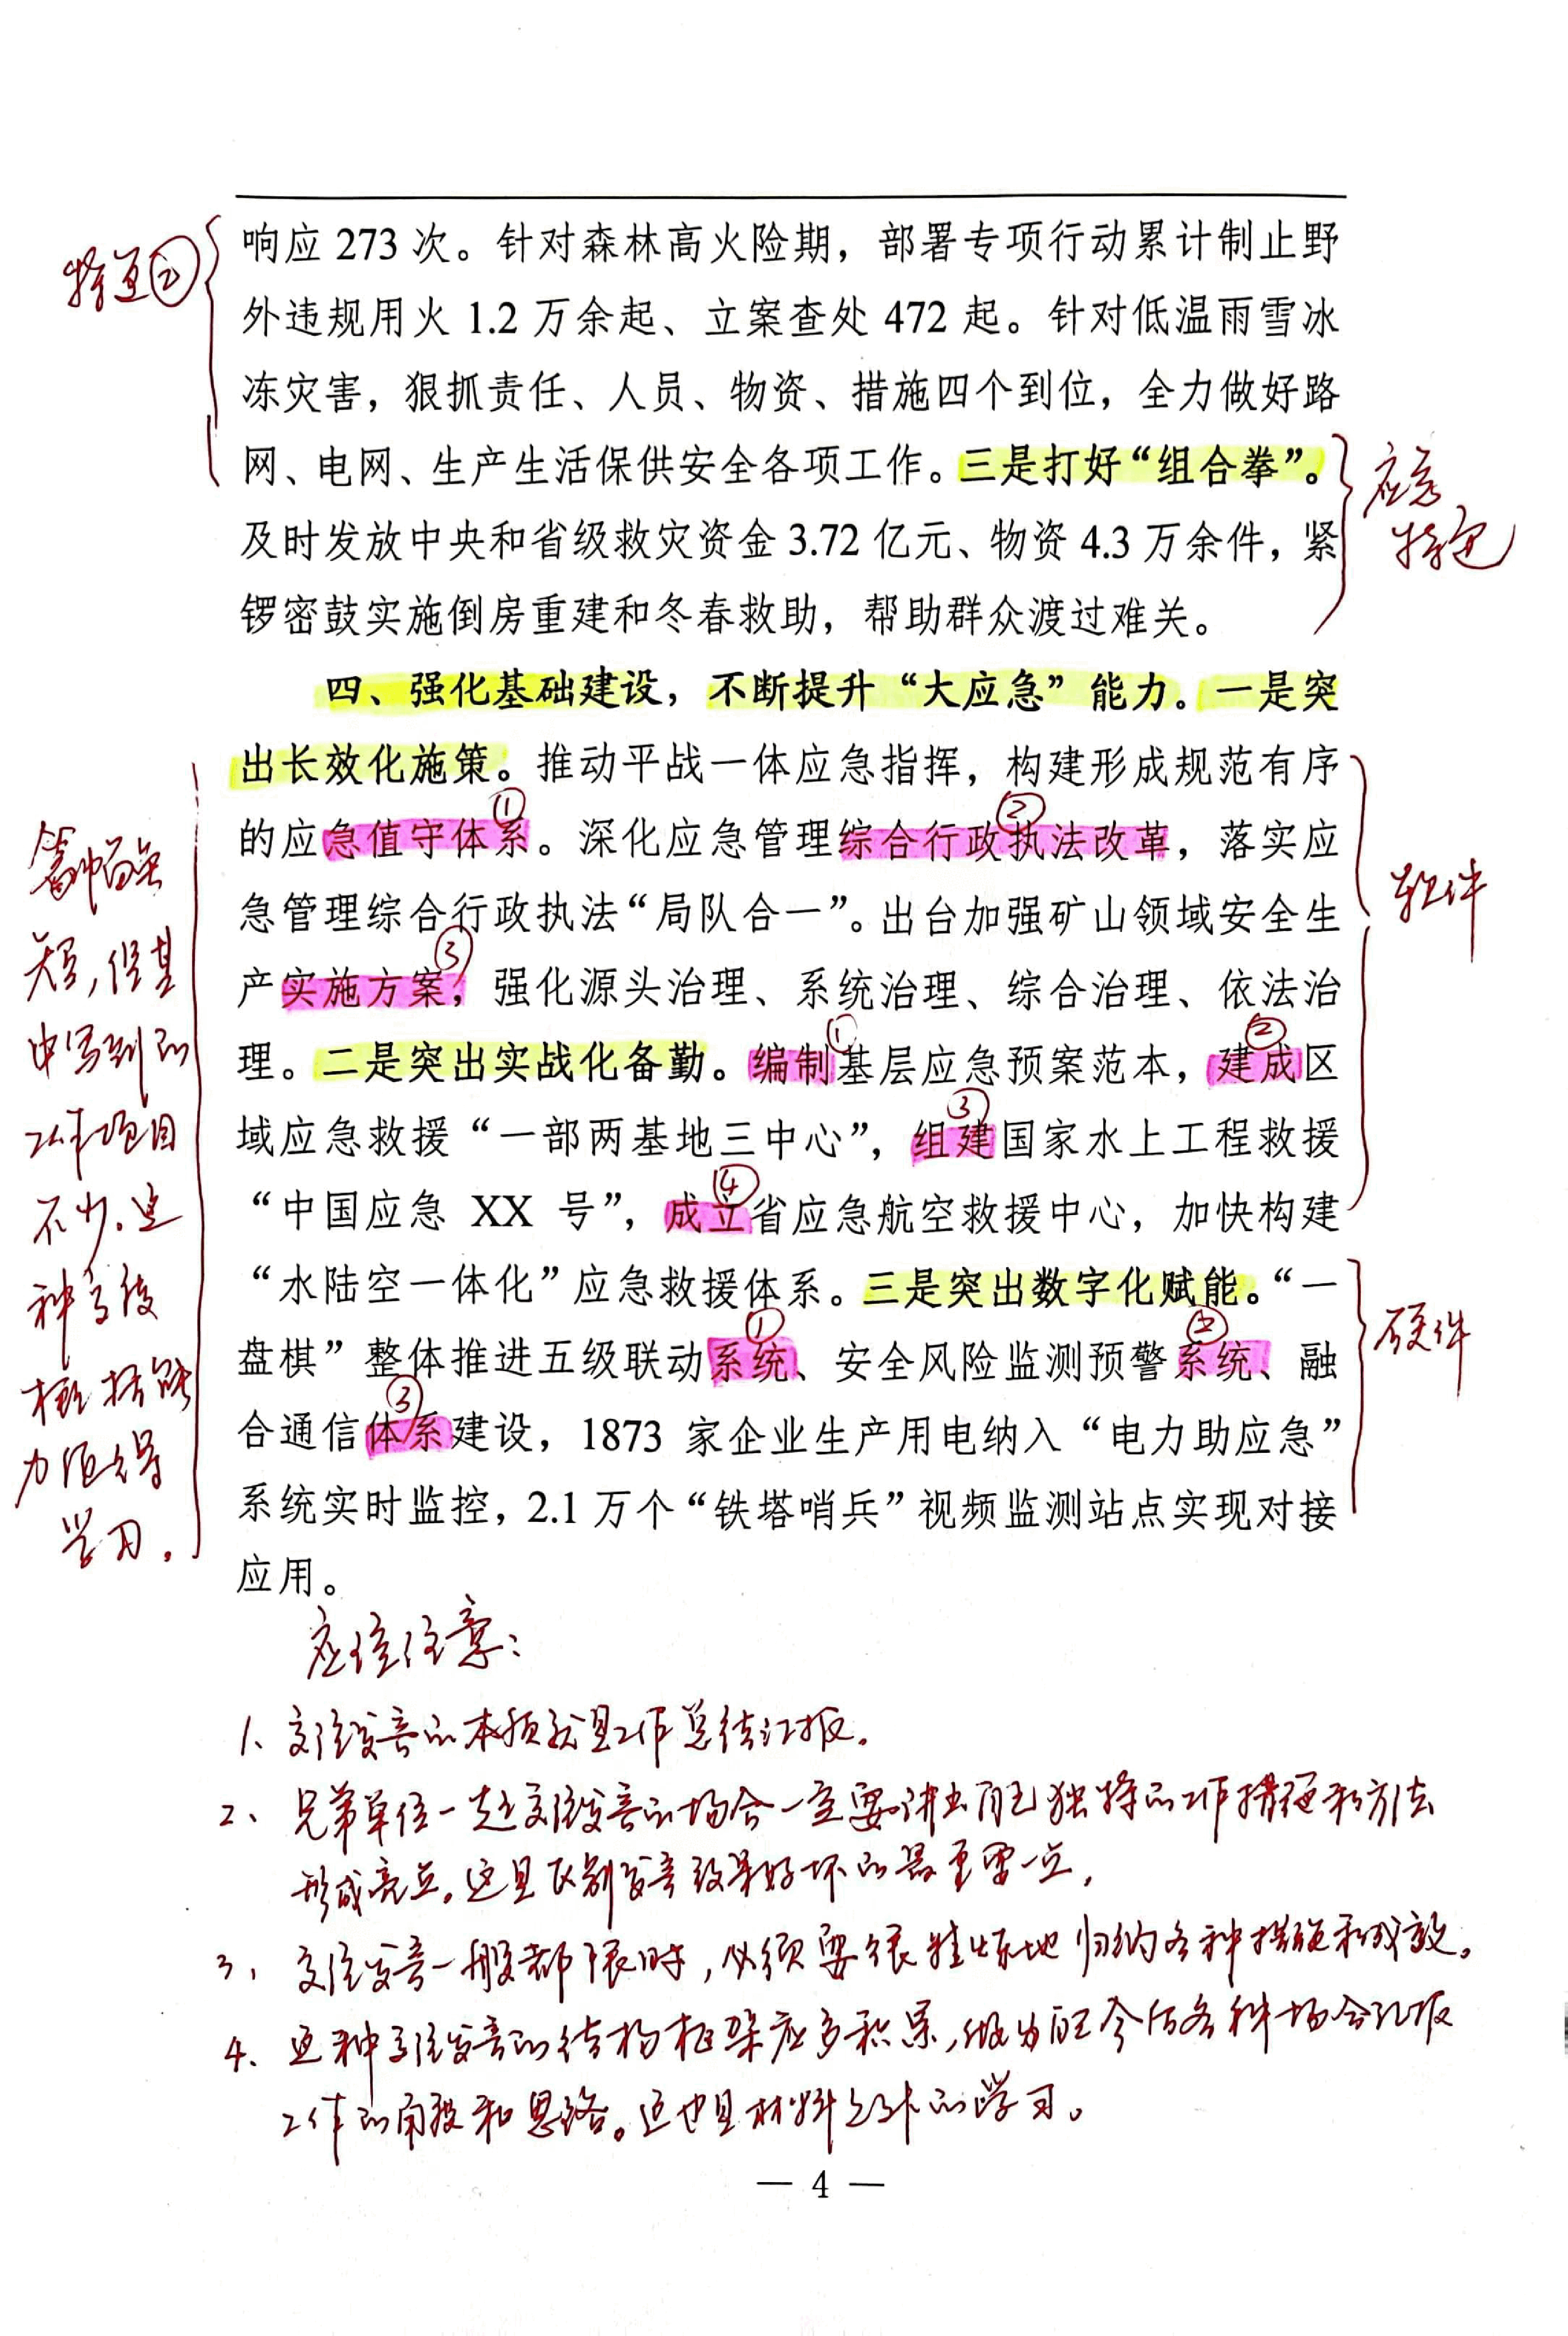 响应 273 次。针对森林高火险期，部署专项行动累计制止野
外违规用火 1.2 万余起、立案查处 472 起。针对低温雨雪冰
冻灾害，狠抓责任、人员、物资、措施四个到位，全力做好路
网、电网、生产生活保供安全各项工作。三是打好“组合拳”。
及时发放中央和省级救灾资金 3.72 亿元、物资 4.3 万余件，紧
锣密鼓实施倒房重建和冬春救助，帮助群众渡过难关。
②
应急
四、强化基础建设，不断提升“大应急”能力。一是突
出长效化施策。推动平战一体应急指挥，构建形成规范有序
① ②
的应急值守体系。深化应急管理综合行政执法改革，落实应
急管理综合行政执法“局队合一”。出台加强矿山领域安全生
③
产实施方案，强化源头治理、系统治理、综合治理、依法治
① ②
理。二是突出实战化备勤。编制基层应急预案范本，建成区
③
域应急救援“一部两基地三中心”，组建国家水上工程救援
④
“中国应急 XX 号”，成立省应急航空救援中心，加快构建
“水陆空一体化”应急救援体系。三是突出数字化赋能。“一
① ②
盘棋”整体推进五级联动系统、安全风险监测预警系统、融
③
合通信体系建设，1873 家企业生产用电纳入“电力助应急”
系统实时监控，2.1 万个“铁塔哨兵”视频监测站点实现对接
应用。
软件
硬件
篇幅虽
短，但其
中写到的
工作项目
不少。这
种高度
概括能
力值得
学习。
应该注意：
1、交流发言的本质就是工作总结汇报。
2、兄弟单位一起交流发言的场合一定要讲出自己独特的工作措施和方法
形成亮点。这是区别发言效果好坏的最重要一点。
3、交流发言一般都限时，必须要很精炼地归纳各种措施和成效。
4、这种交流发言的结构框架应多积累，做为自己今后各种场合汇报
工作的角度和思路。这也是材料之外的学习。
— 4 —